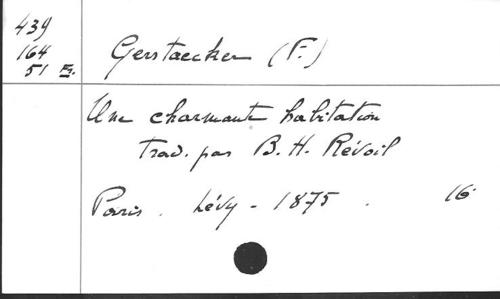 439
164
51 Fz.
Gerstaecker (F.)
Une charmante habitation
trad. par B.H. Révoil
Paris. Lévy - 1875. 16